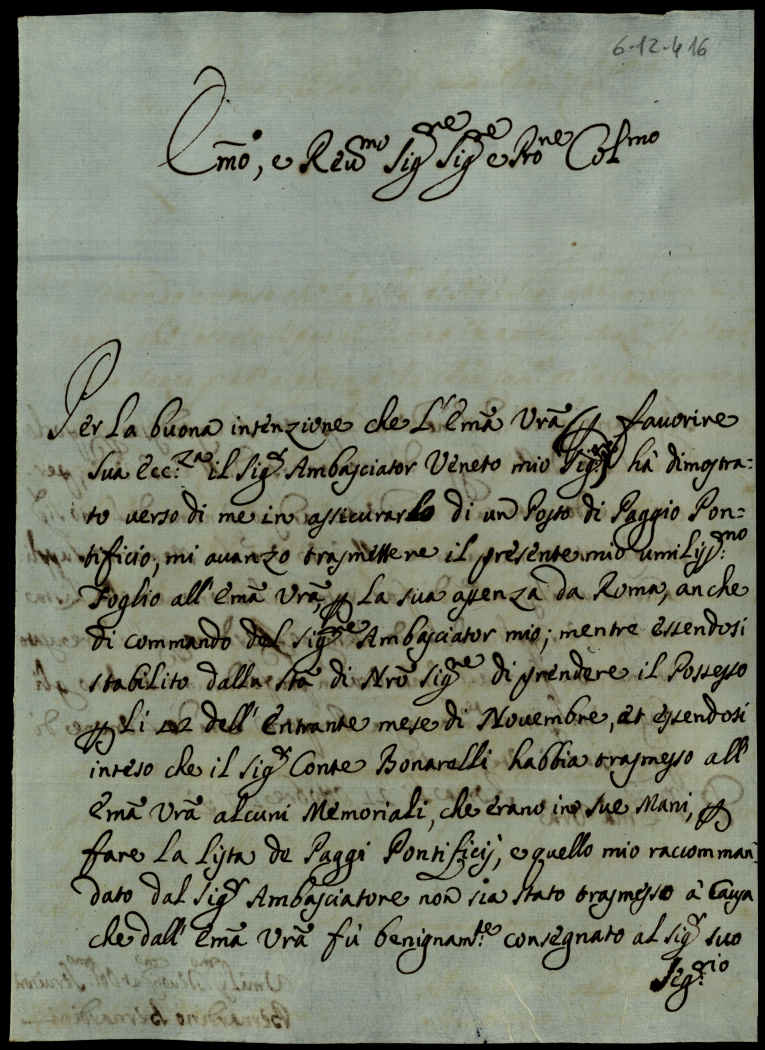 6-12-416
Em̃o, e Reu.mo Sig.re Sig.re e Pro.ne Col.mo
Per la buona intenzione che l'Em̃a Vrã p favorire
sua Ecc.za il Sig.r Ambasciator Veneto mio Sig.re hà dimostra=
to verso di me in assicurarlo di un Posto di Paggio Pon=
tificio, mi avanzo trasmettere il presente mio umiliss.mo
Foglio all'Em̃a Vrã, p la sua assenza da Roma, anche
di commando del Sig.re Ambasciator mio; mentre essendosi
stabilito dalla Stã di Nrõ Sig.re di prendere il Possesso
p li 12 dell'Entrante mese di Novembre, et essendosi
inteso che il Sig.r Conte Bonarelli habbia trasmesso all'
Em̃a Vrã alcuni Memoriali, che erano in sue Mani, p
fare la lista de Paggi Pontificij, e quello mio raccomman=
dato dal Sig.r Ambasciatore non sia stato trasmesso à Causa
che dall'Em̃a Vrã fù benignam.te consegnato al Sig.r suo
Seg.rio